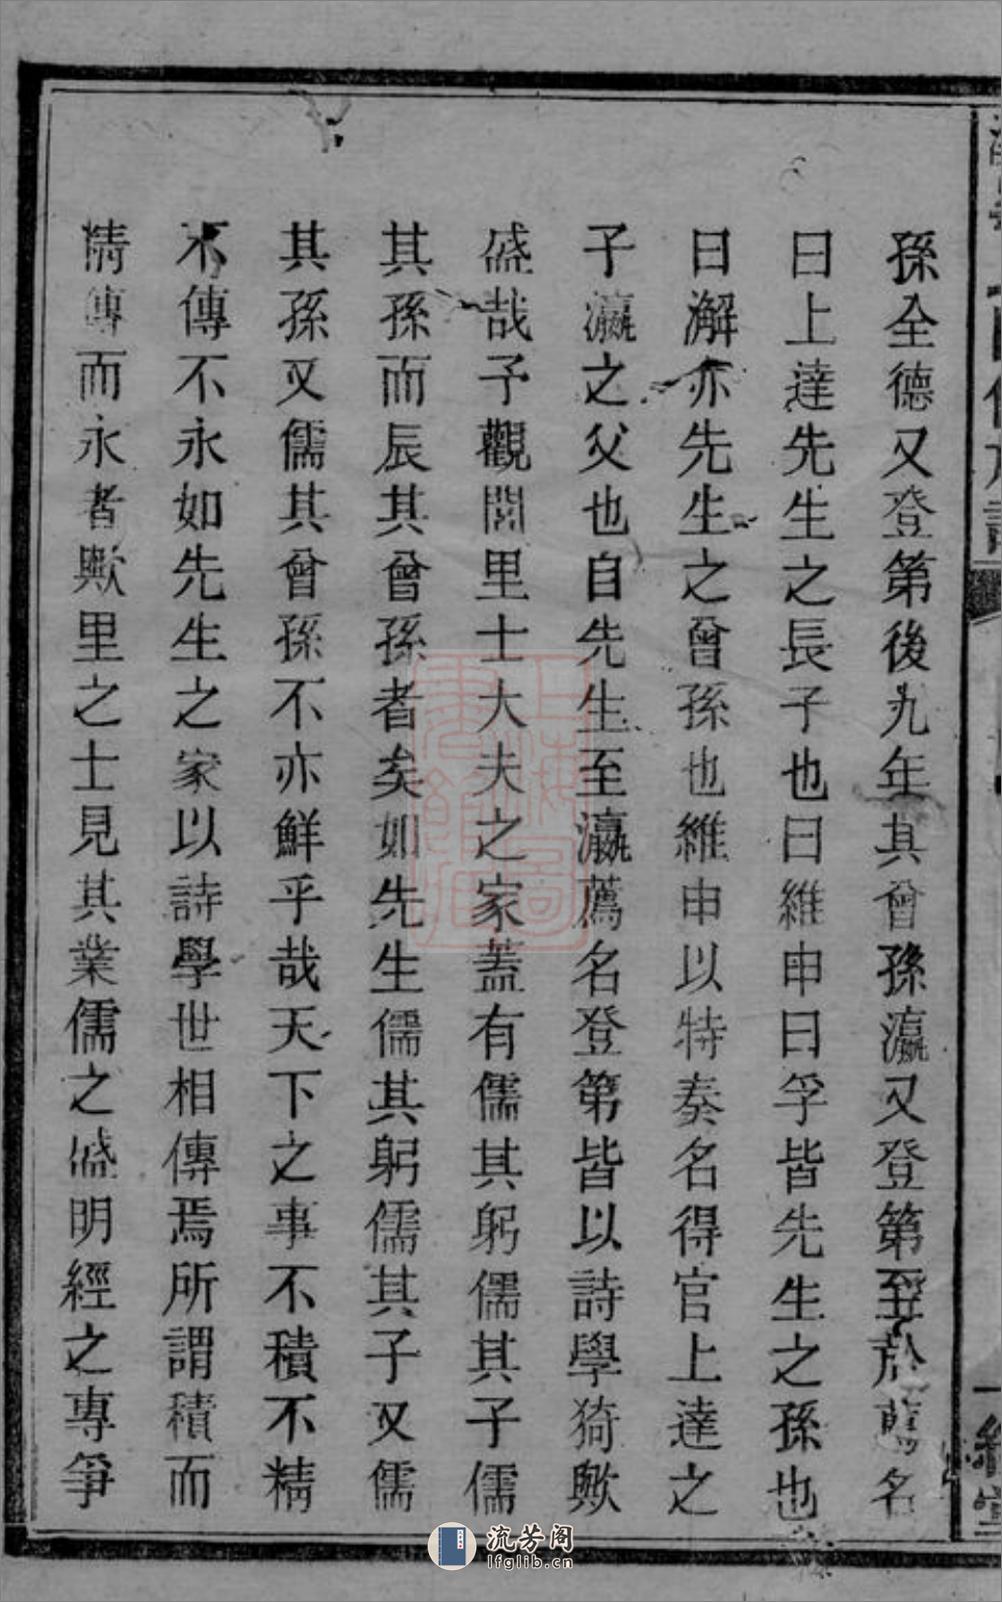 孫全德又登第後九年其曾孫瀛又登第至於薦名
曰上達先生之長子也曰維申曰孚皆先生之孫也
曰澥亦先生之曾孫也維申以特奏名得官上達之
子瀛之父也自先生至瀛薦名登第皆以詩學猗歟
盛哉予觀閭里士大夫之家蓋有儒其躬儒其子儒
其孫而辰其曾孫者矣如先生儒其躬儒其子又儒
其孫又儒其曾孫不亦鮮乎哉天下之事不積不精
不傳不永如先生之家以詩學世相傳焉所謂積而
精傳而永者歟里之士見其業儒之盛明經之專爭
流芳阁
lfglib.cn